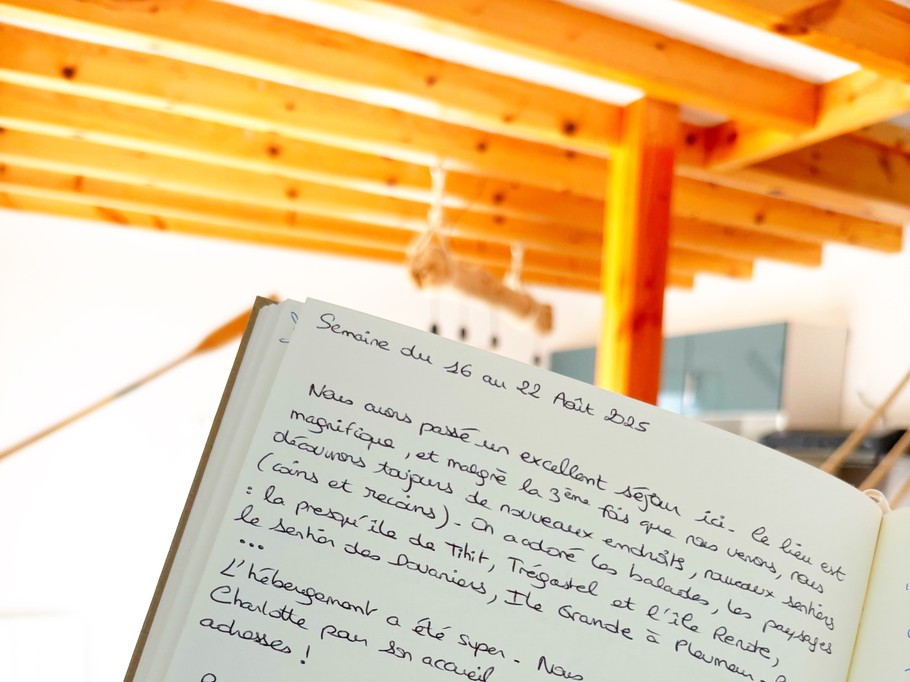 Semaine du 16 au 22 Août 2025
Nous avons passé un excellent séjour ici. Le lieu est
magnifique, et malgré la 3ème fois que nous venons, nous
découvrons toujours de nouveaux endroits, nouveaux sentiers
(coins et recoins). On a adoré les balades, les paysages
: la presqu'île de Tihit, Trégastel et l'île Renote,
le sentier des Douaniers, Ile Grande à Pleumeur-
...
L'hébergement a été super. Nous
Charlotte pour son accueil
adresses !